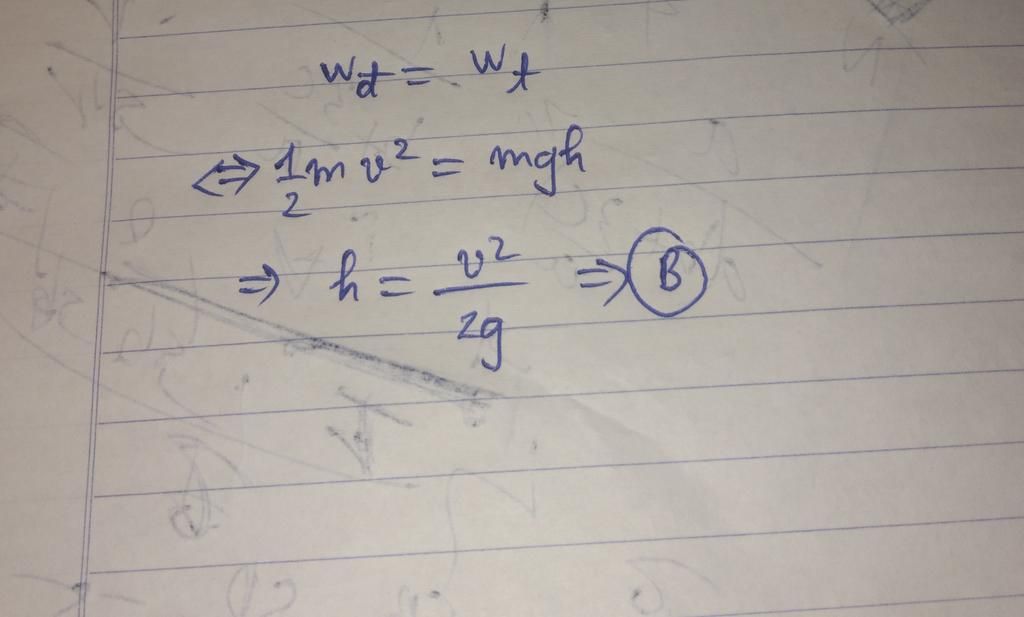 Wđ = Wt
⇔ 1/2 m v² = mgh
⇒ h = v²/2g ⇒ B